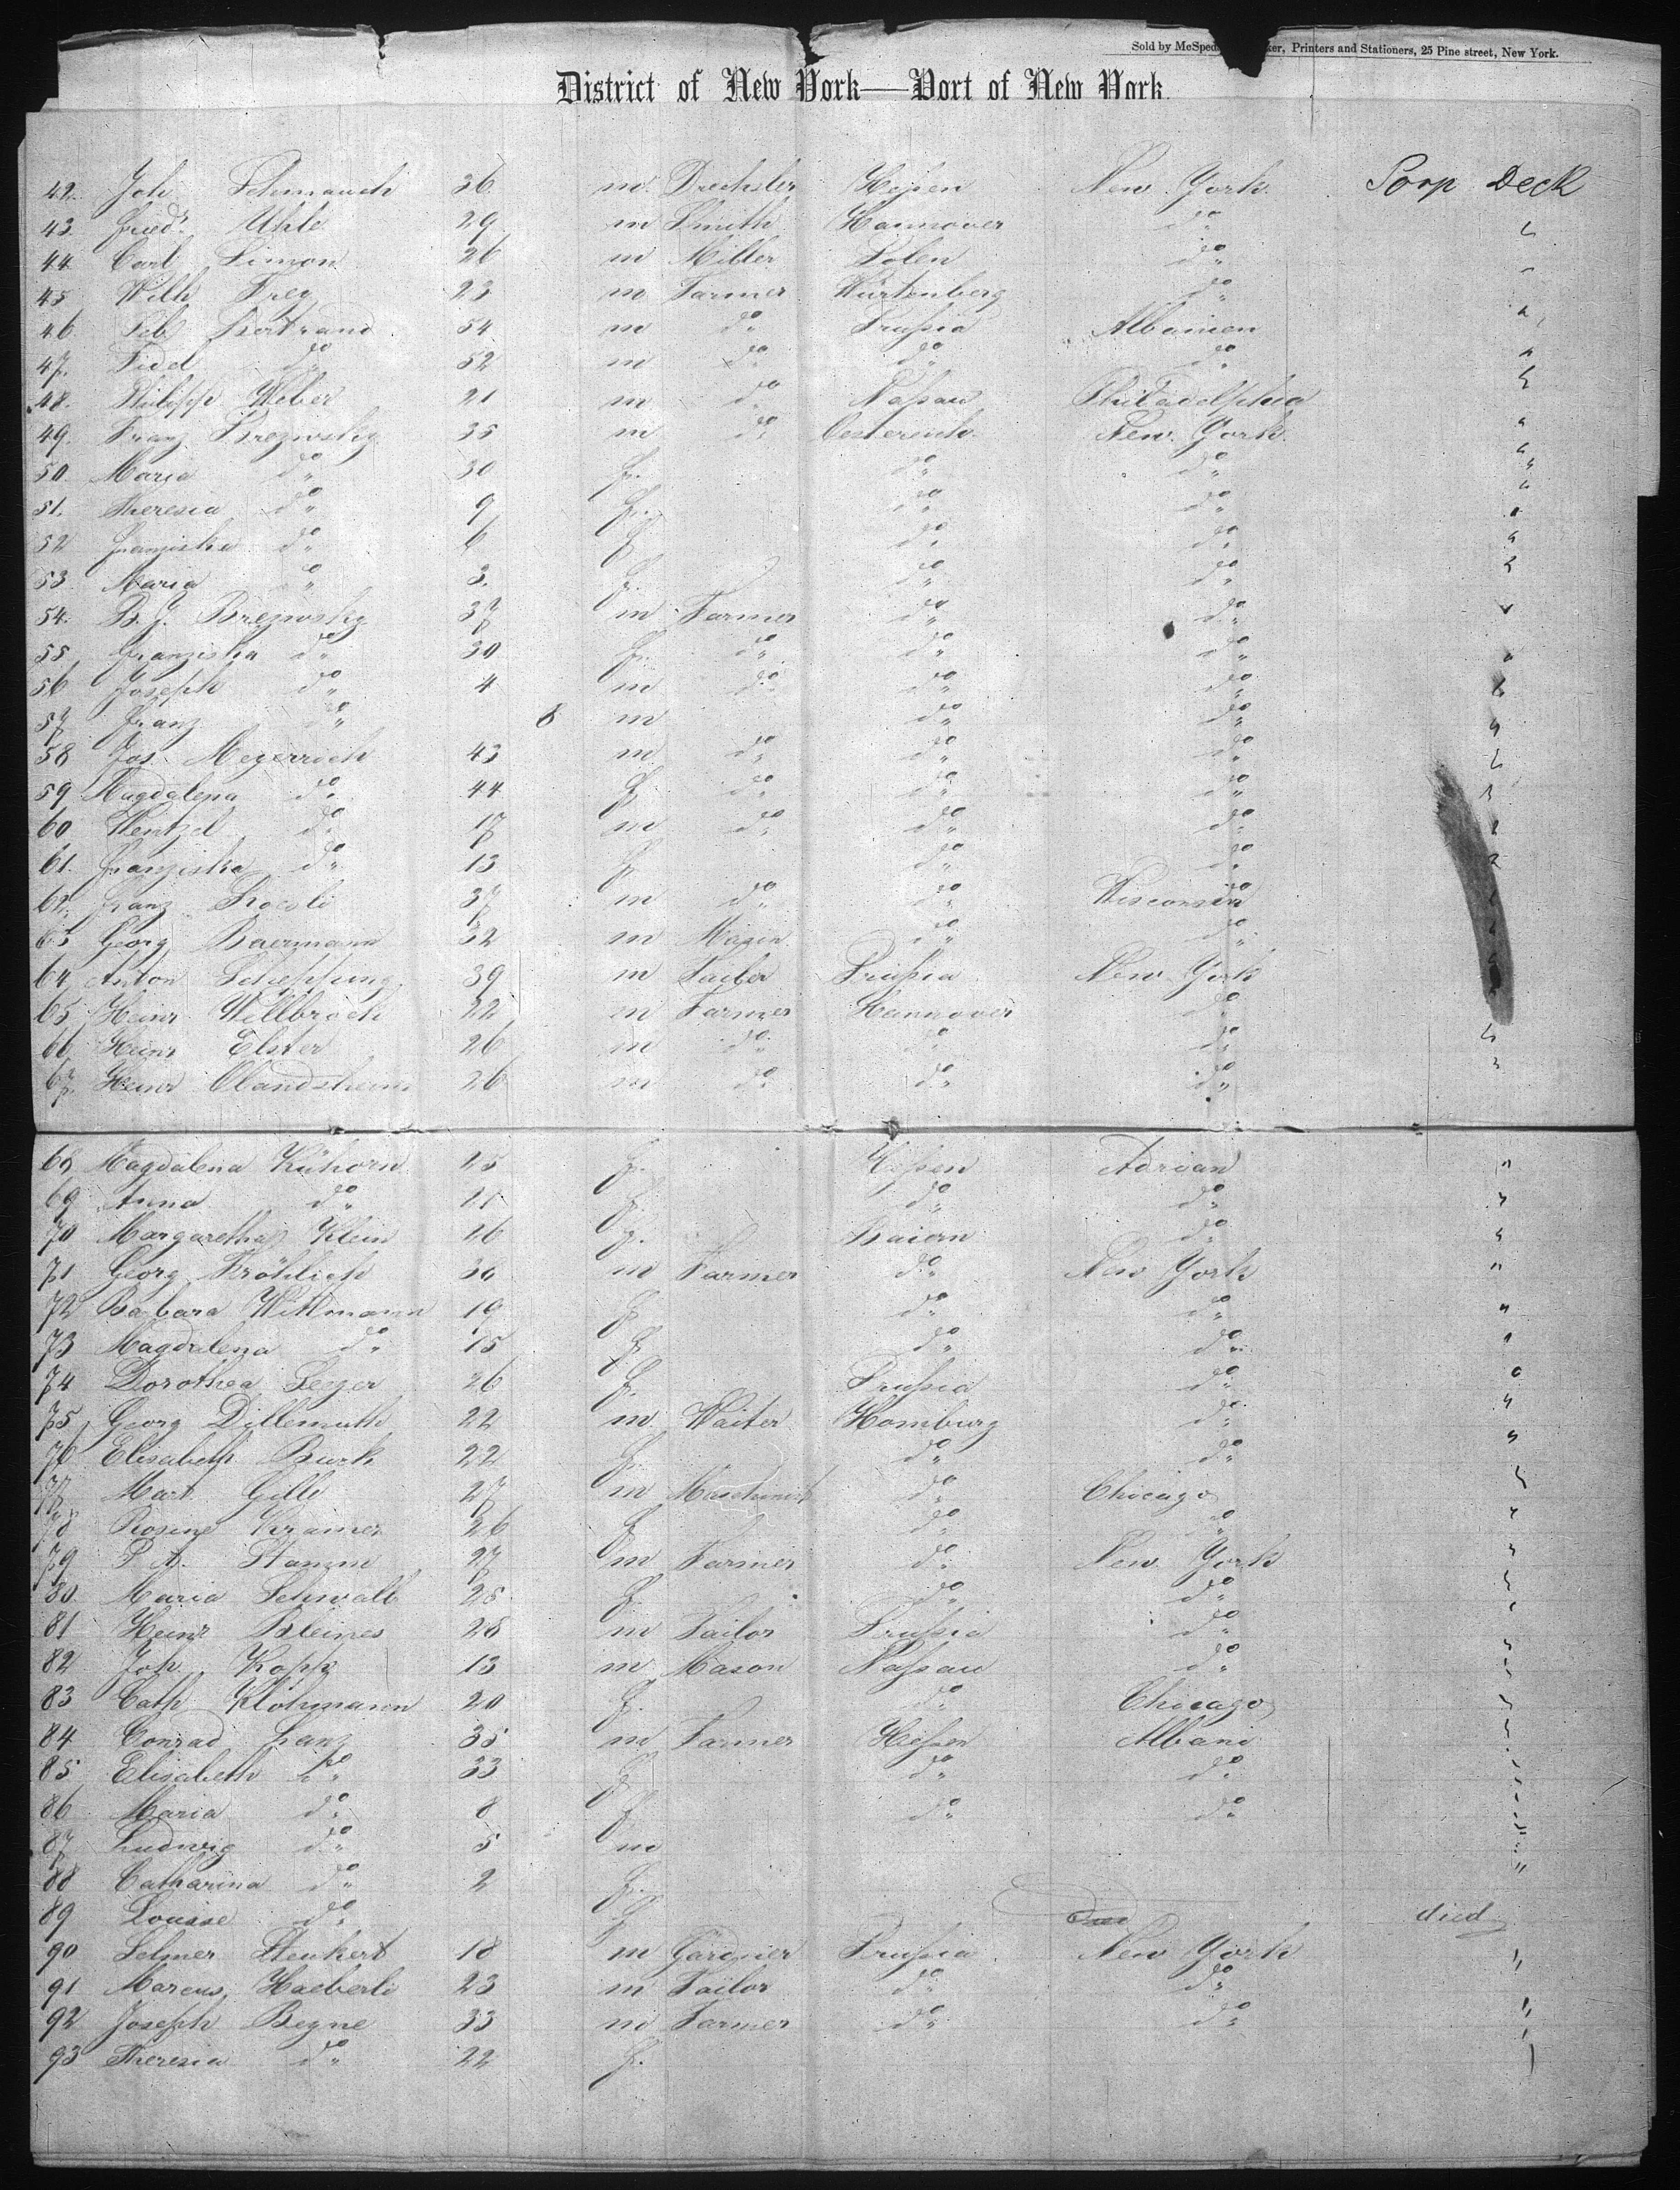 Sold by McSpe ker, Printers and Stationers, 25 Pine street, New York.
District of New York—Port of New York.
42. Joh Schmauch 36 m. Drechsler Heſsen New York Poop Deck
43. Friedr. Uhle 29 m Smith Hannover do "
44. Carl Simon 26 m Miller Polen do "
45 Wilh Frey 23 m Farmer Würtenberg do "
46. Seb Bertrand 54 m do Pruſsia Albanien "
47. Fidel do 52 m do do do "
48. Philipp Weber 21 m do Naſsau Philadelphia "
49. Franz Breznosky 35 m do Oestereich New York "
50. Maria do 30 f. do do "
51. Theresia do 9 f. do do "
52 Franziska do 6 f do do "
53. Maria do 3. f. do do "
54. B. J. Breznosky 37 m Farmer do do "
55 Franziska do 30 f. do do do "
56 Joseph do 4 m do do do "
57 Franz do 8 m do do "
58 Jos. Megerrich 43 m do do do "
59 Magdalena do 44 f do do do "
60 Wentzel do 17 m do do do "
61. Franziska do 13 f do do "
62. Franz 37 m do do Wisconsin "
63 Georg Baermann 32 m Mason do do "
64 Anton Scheppung 39 m Tailer Pruſsia New York "
65 Heinr Willbroch 22 m Farmer Hannover do "
66 Heinr Elster 26 m do do do "
67. Heinr Olandsheim 26 m do do do "
68 Magdalena Kühorn 25 f. Heſsen Adrian "
69 Anna do 21 f. do do "
70 Margaretha Klein 26 f. Baiern do "
71 Georg Fröhlich 30 m Farmer do New York "
72 Barbara Wittmann 19 f do do "
73 Magdalena do 15 f do do "
74 Dorothea Seyer 26 f. Pruſsia do "
75 Georg Dillemuth 22 m Waiter Homburg do "
76 Elisabeth Burk 22 f. do do "
77 Mart. Gille 27 m Maschinist do Chicago "
78 Rosine Kramer 26 f do do "
79 P. A. Stamm 27 m Farmer do New York "
80 Maria Schwalb 25 f. do do "
81 Heinr Kleines 28 m Tailor Pruſsia do "
82 Joh. Kopp 13 m Mason Naſsau do "
83 Cath Klohmann 20 f. do Chicago "
84 Conrad Lanz 35 m Farmer Heſsen Albani "
85 Elisabeth do 33 f do do "
86 Maria do 8 f do do "
87 Ludwig do 5 m "
88 Catharina do 2 f. "
89 Louise do f died
90 Selmer Stenkert 18 m Gärdner Pruſsia New York "
91 Marcus Haeberle 23 m Tailor do do
92 Joseph Beyne 33 m Farmer do do "
93 Theresia do 22 f. "